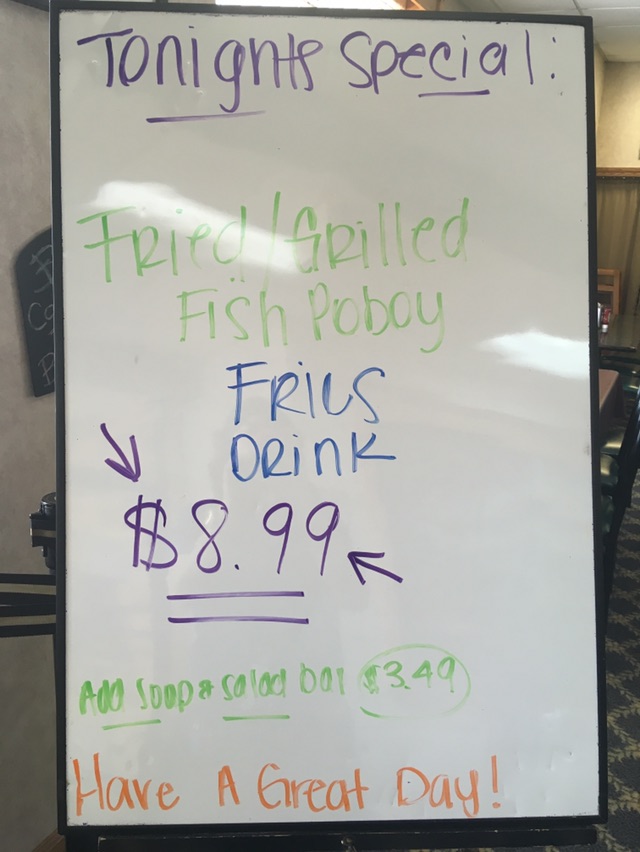 Tonights Special:
Fried/Grilled
Fish Poboy
Fries
Drink
$8.99
Add Soup & Salad bar $3.49
Have A Great Day!